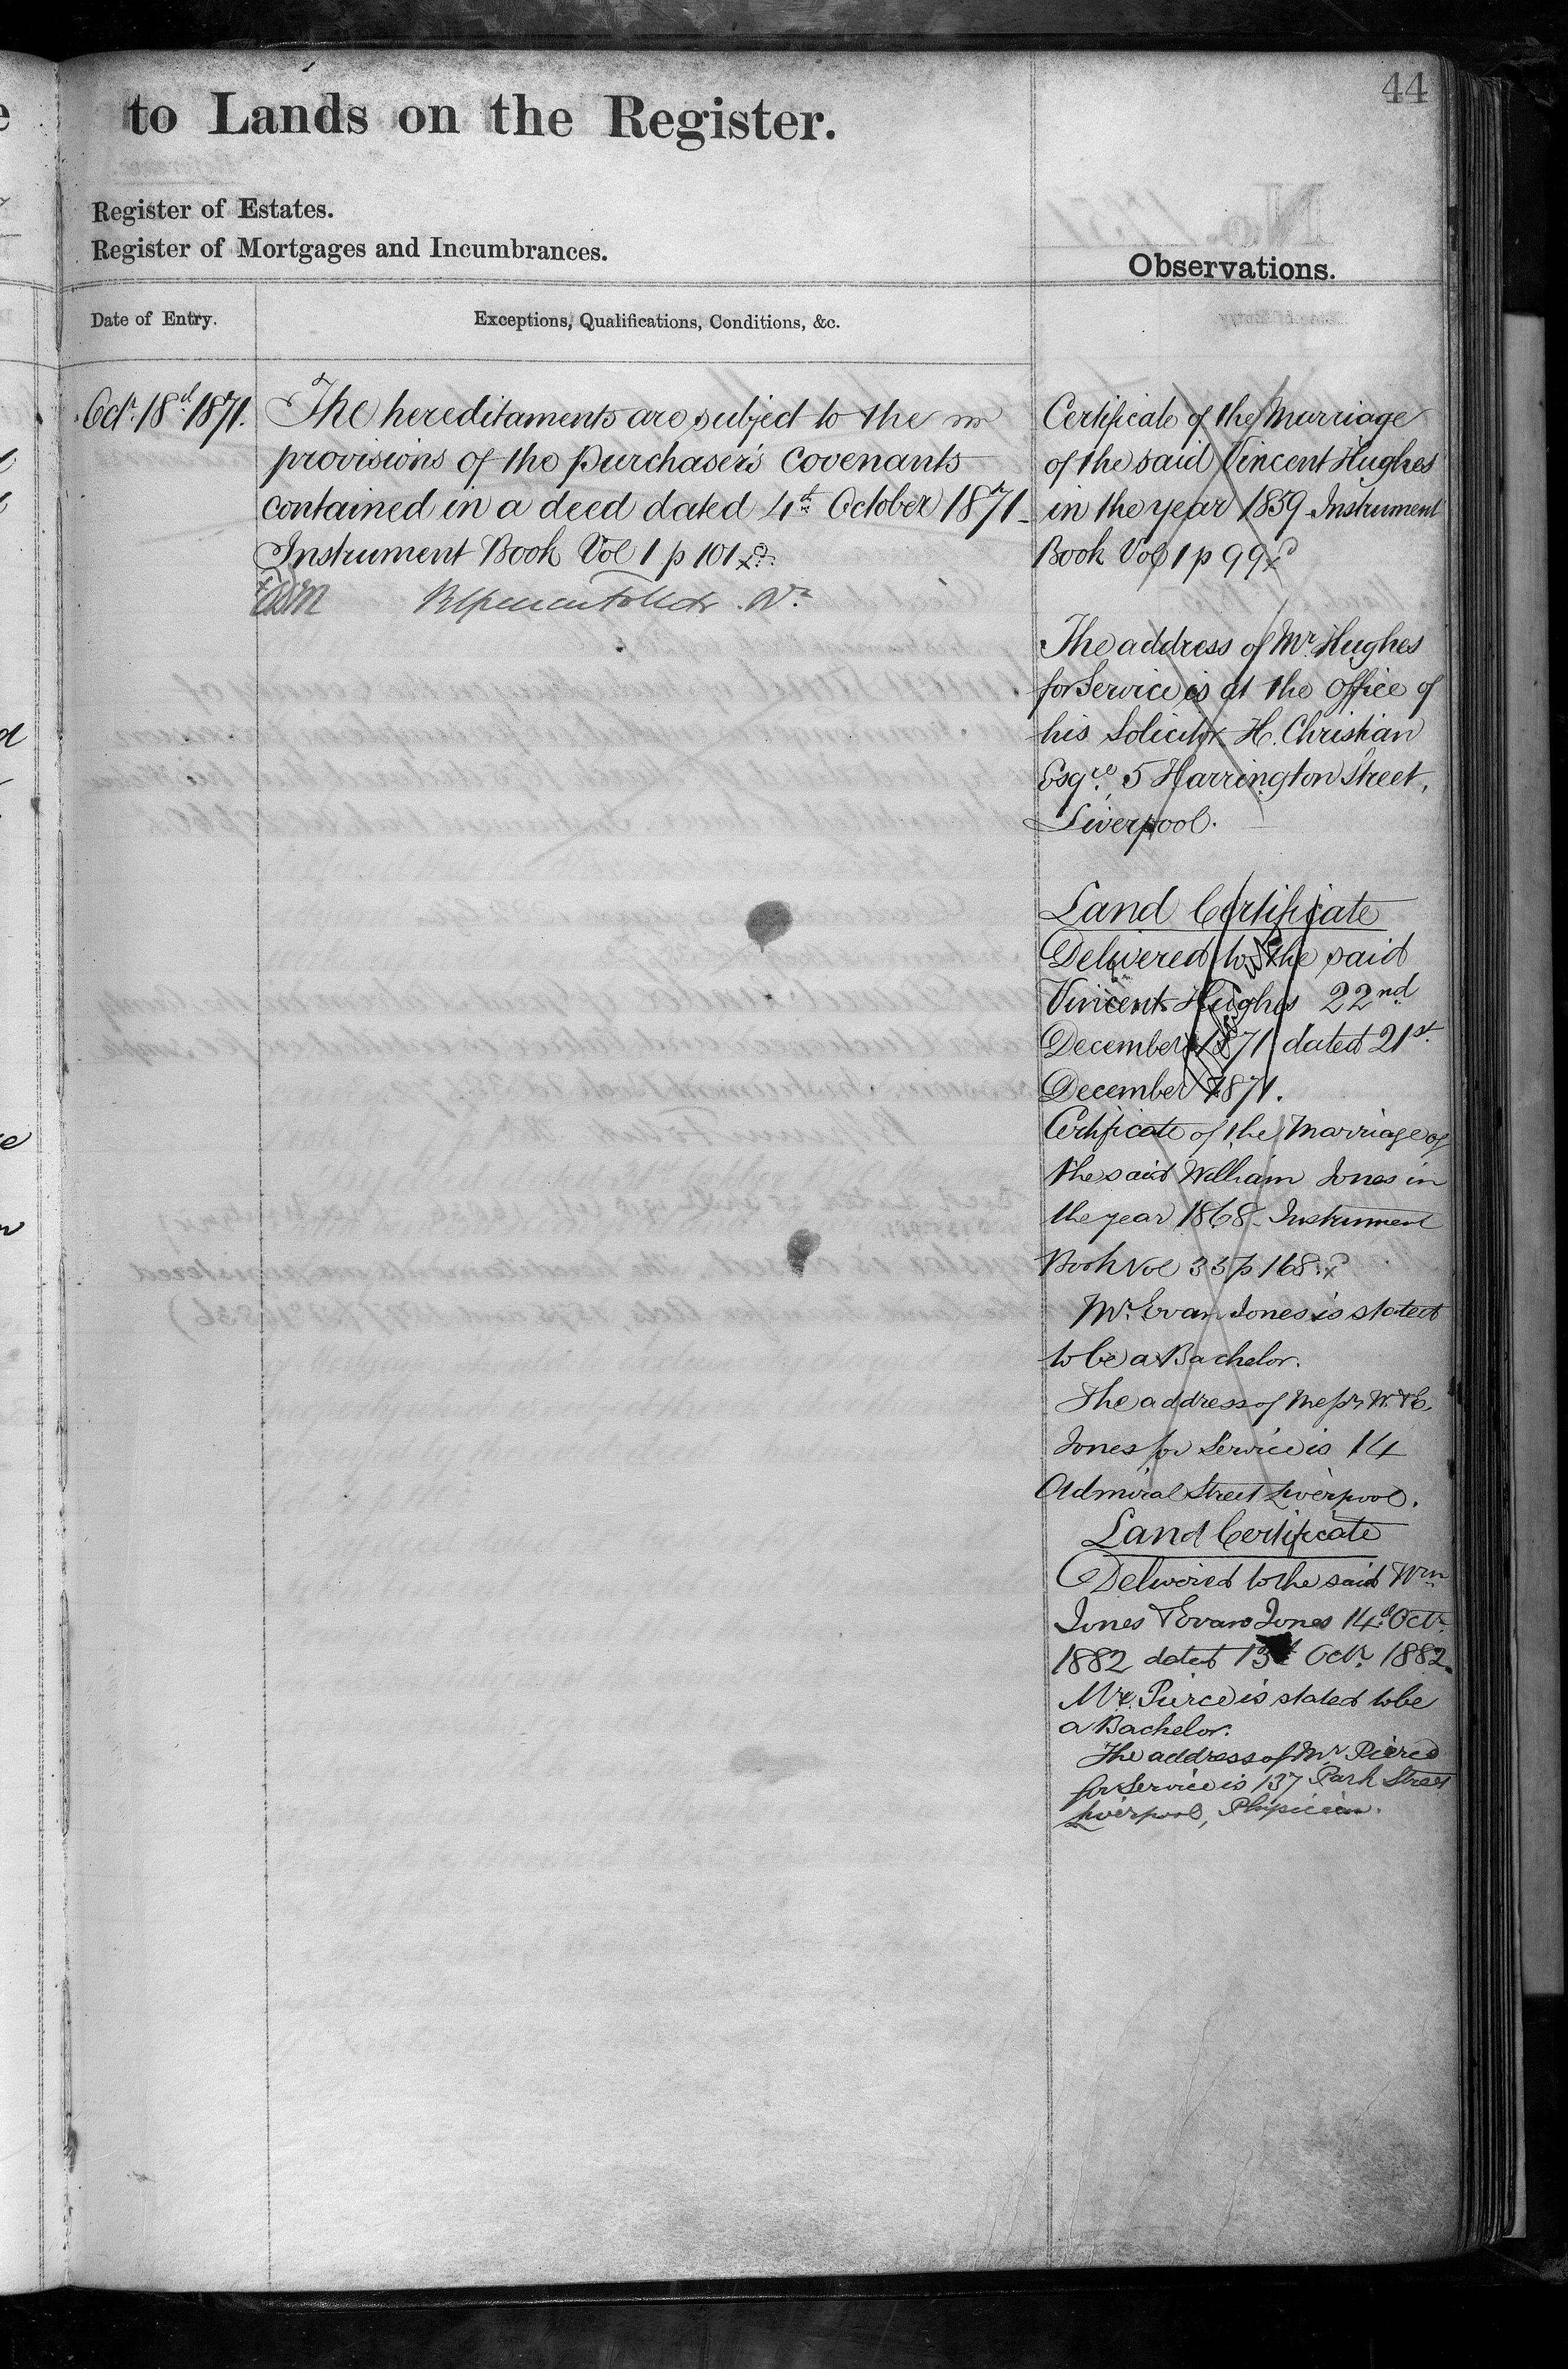 44
to Lands on the Register.
Register of Estates.
Register of Mortgages and Incumbrances.
Observations.
Date of Entry.
Exceptions, Qualifications, Conditions, &c.
Octr. 18th 1871.
The hereditaments are subject to the
provisions of the purchaser's Covenants
contained in a deed dated 4th October 1871 -
Instrument Book Vol 1 p 101
Certificate of the Marriage
of the said Vincent Hughes
in the year 1859 Instrument
Book Vol 1 p 99
The address of Mr. Hughes
for Service is at the Office of
his Solicitor H. Christian
Esqre. 5 Harrington Street,
Liverpool.
Land Certificate
Delivered to the said
Vincent Hughes 22nd
December 1871 dated 21st
December 1871.
Certificate of the Marriage of
the said William Jones in
the year 1868 - Instrument
Book Vol 33 p 168.
Mr. Evan Jones is stated
to be a Bachelor.
The address of Messrs W. & E.
Jones for Service is 14
Admiral Street Liverpool.
Land Certificate
Delivered to the said Wm
Jones & Evan Jones 14th Octr.
1882 dated 13th Octr. 1882.
Mr. Pierce is stated to be
a Bachelor.
The address of Mr. Pierce
for Service is 137 Park Street
Liverpool, Physician.